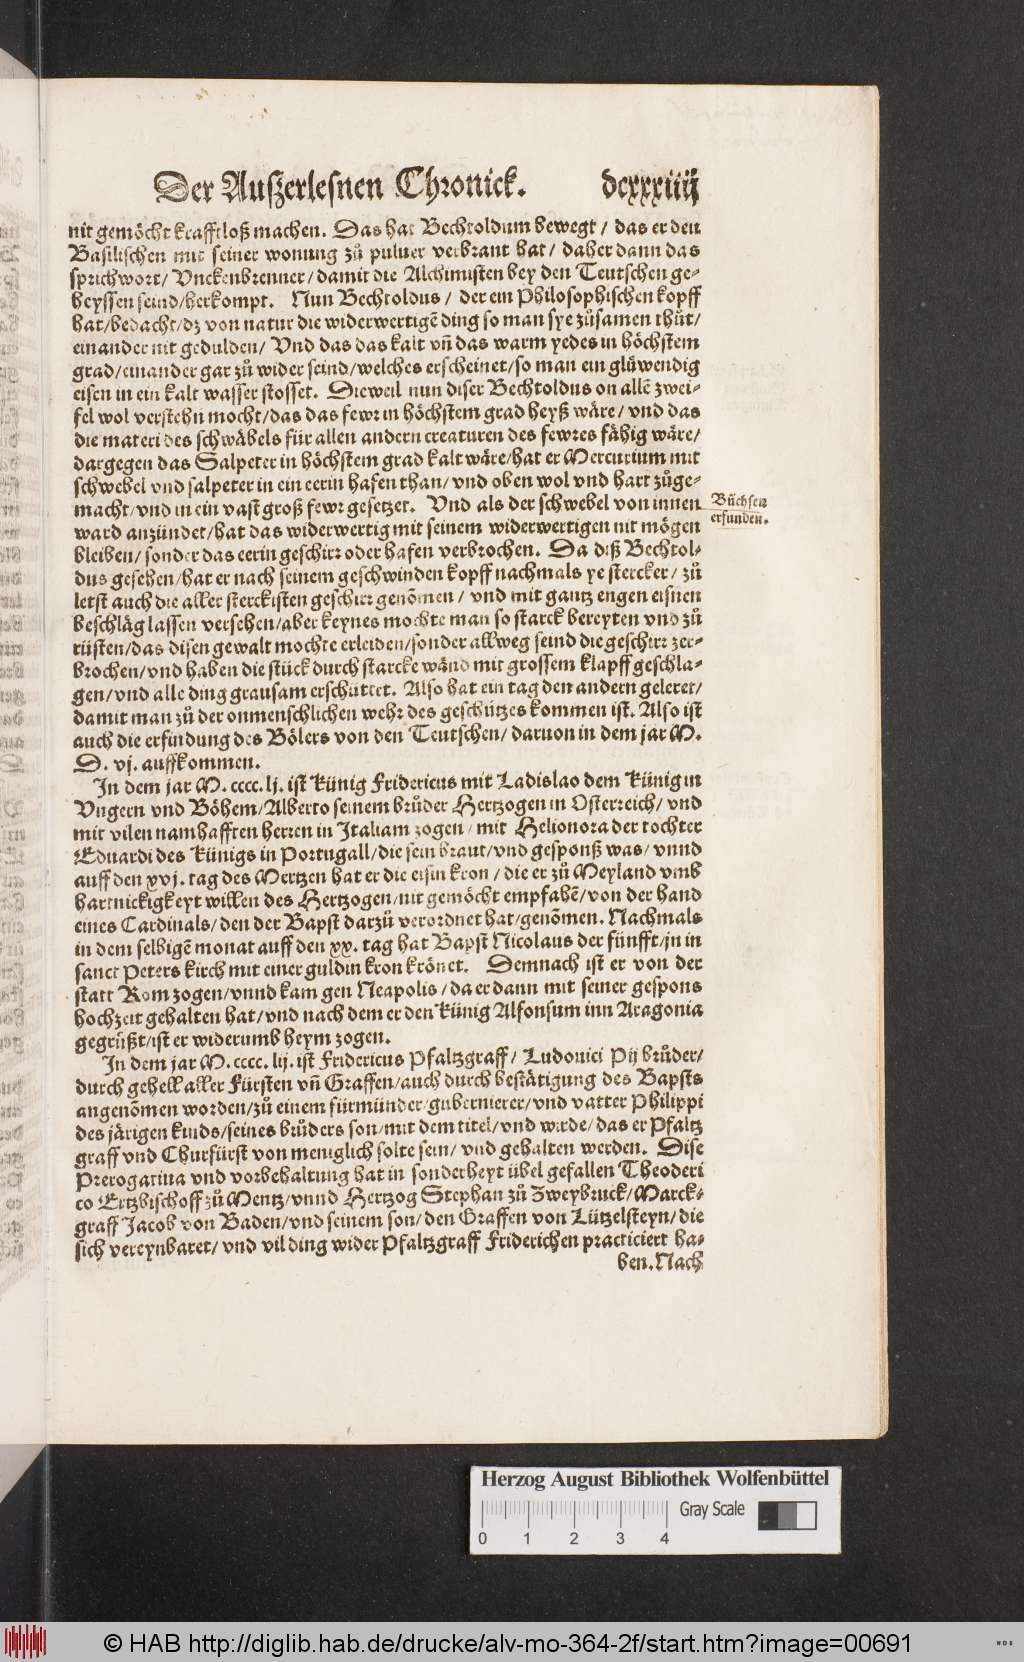 Der Außerlesnen Chronick. dcxxxiiij
nit gemöcht krafftloß machen. Das hat Bechtoldum bewegt / das er den
Basilischen mit seiner wonung zů puluer verbrant hat / daher dann das
sprichwort / Vnckenbrenner / damit die Alchimisten bey den Teutschen ge-
heyssen seind / herkompt. Nun Bechtoldus / der ein Philosophischen kopff
hat / bedacht / dz von natur die widerwertigē ding so man sye zůsamen thůt /
einander nit gedulden / Vnd das das kalt vñ das warm yedes in höchstem
grad / einander gar zů wider seind / welches erscheinet / so man ein glüwendig
eisen in ein kalt wasser stosset. Dieweil nun diser Bechtoldus on allē zwei-
fel wol verstehn mocht / das das fewr in höchstem grad heyß wäre / vnd das
die materi des schwäbels für allen andern creaturen des fewres fähig wäre /
dargegen das Salpeter in höchstem grad kalt wäre / hat er Mercurium mit
schwebel vnd salpeter in ein eerin hafen than / vnd oben wol vnd hart zůge-
macht / vnd in ein vast groß fewr gesetzet. Vnd als der schwebel von innen
Büchsen
erfunden.
ward anzündet / hat das widerwertig mit seinem widerwertigen nit mögen
bleiben / sonder das eerin geschirr oder hafen verbrochen. Da diß Bechtol-
dus gesehen / hat er nach seinem geschwinden kopff nachmals ye stercker / zů
letst auch die aller sterckisten geschirr genōmen / vnd mit gantz engen eisnen
beschläg lassen versehen / aber keynes mochte man so starck bereyten vnd zů
rüsten / das disen gewalt mochte erleiden / sonder allweg seind die geschirr zer-
brochen / vnd haben die stück durch starcke wänd mit grossem klapff geschla-
gen / vnd alle ding grausam erschüttet. Also hat ein tag den andern geleret /
damit man zů der onmenschlichen wehr des geschützes kommen ist. Also ist
auch die erfindung des Bölers von den Teutschen / daruon in dem jar M.
D. vj. auffkommen.
In dem jar M. cccc. lj. ist Künig Fridericus mit Ladislao dem Künig in
Vngern vnd Böhem / Alberto seinem brůder Hertzogen in Osterreich / vnd
mit vilen namhafften herren in Italiam zogen / mit Helionora der tochter
Eduardi des Künigs in Portugall / die sein braut / vnd gesponß was / vnnd
auff den xvj. tag des Mertzen hat er die eisin kron / die er zů Meyland vmb
hartnickigkeyt willen des Hertzogen / nit gemöcht empfahē / von der hand
eines Cardinals / den der Bapst darzů verordnet hat / genōmen. Nachmals
in dem selbigē monat auff den xx. tag hat Bapst Nicolaus der fünfft / jn in
sanct Peters kirch mit einer guldin kron krönet. Demnach ist er von der
statt Rom zogen / vnnd kam gen Neapolis / da er dann mit seiner gespons
hochzeit gehalten hat / vnd nach dem er den Künig Alfonsum inn Aragonia
gegrüßt / ist er widerumb heym zogen.
In dem jar M. cccc. lij. ist Fridericus Pfaltzgraff / Ludouici Pij brůder /
durch gehell aller Fürsten vñ Graffen / auch durch bestätigung des Bapsts
angenōmen worden / zů einem fürmünder / gubernierer / vnd vatter Philippi
des järigen kinds / seines brůders son / mit dem titel / vnd wirde / das er Pfaltz
graff vnd Churfürst von meniglich solte sein / vnd gehalten werden. Dise
Prerogatiua vnd vorbehaltung hat in sonderheyt übel gefallen Theoderi
co Ertzbischoff zů Mentz / vnnd Hertzog Stephan zů Zweybruck / Marck-
graff Jacob von Baden / vnd seinem son / den Graffen von Lützelsteyn / die
sich vereynbaret / vnd vil ding wider Pfaltzgraff Friderichen practiciert ha-
ben. Nach
Herzog August Bibliothek Wolfenbüttel
0 1 2 3 4 Gray Scale
© HAB http://diglib.hab.de/drucke/alv-mo-364-2f/start.htm?image=00691